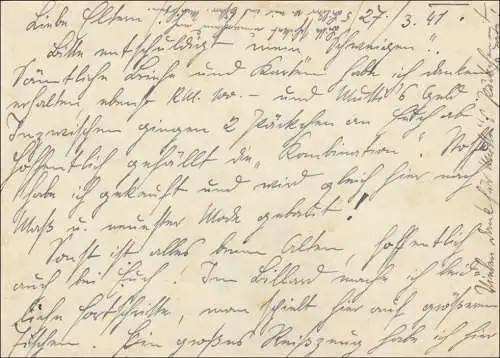 27. 3. 41.
Liebe Eltern!
Bitte entschuldigt mein Schweigen.
Sämtliche Briefe und Karten habe ich dankend
erhalten ebenso RM. 100.– und Mutti's Geld
Inzwischen gingen 2 Päckchen an Euch ab.
Hoffentlich gefällt die „Kombination". Stoff
habe ich gekauft und wird gleich hier nach
Maß u. neuester Mode gebaut!
Sonst ist alles beim Alten, hoffentlich
auch bei Euch! Im Billard mache ich
liche Fortschritte, man spielt hier auf größeren
Tischen. Ein großes Reißzeug habe ich hier
Vielen Dank für